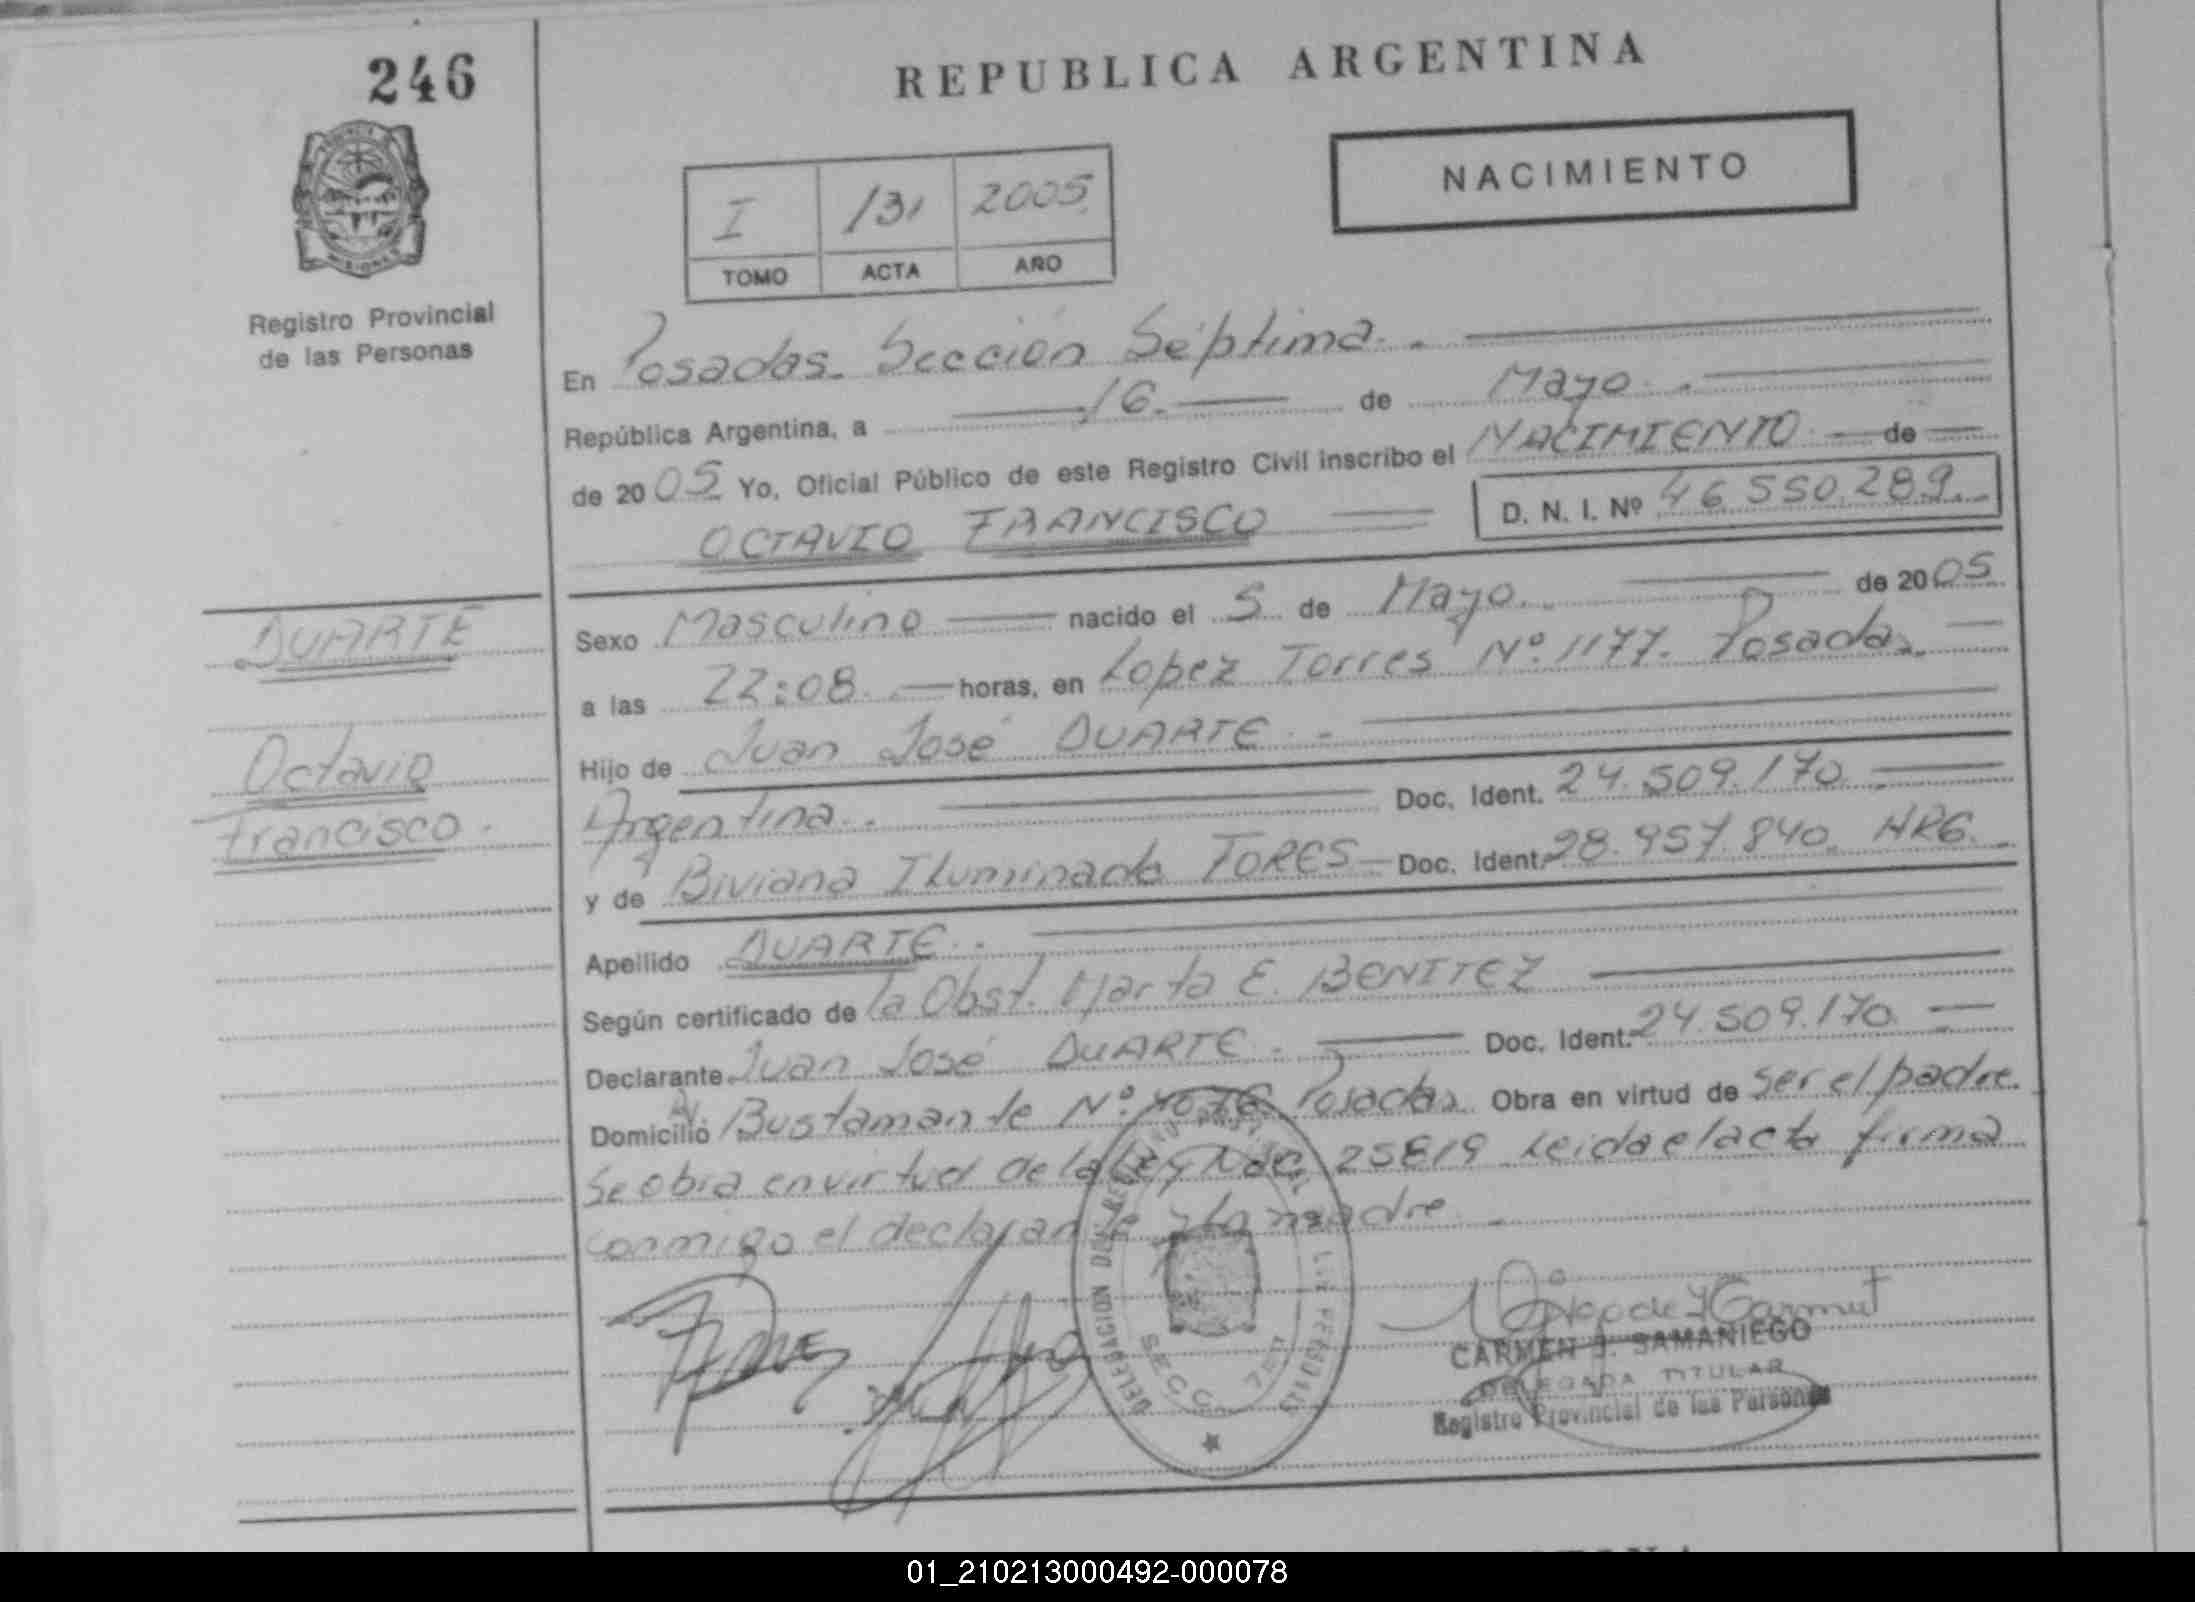 246
REPUBLICA ARGENTINA
NACIMIENTO
I 131 2005
TOMO ACTA AÑO
Registro Provincial
de las Personas
En Posadas. Sección Séptima.
República Argentina, a 16. de Mayo.
de 2005 Yo, Oficial Público de este Registro Civil inscribo el NACIMIENTO de
OCTAVIO FRANCISCO
D. N. I. Nº 46.550.289.
DUARTE
Octavio
Francisco.
Sexo Masculino nacido el 5 de Mayo. de 2005
a las 22:08. horas, en Lopez Torres Nº 1177. Posadas.
Hijo de Juan José DUARTE.
Argentina. Doc. Ident. 24.509.170
y de Biviana Iluminada TORES Doc. Ident. 28.957.840. ARG.
Apellido DUARTE.
Según certificado de la Obst. Marta E. BENITEZ
Declarante Juan José DUARTE. Doc. Ident. 24.509.170
Domicilio Av. Bustamante Nº Posadas Obra en virtud de ser el padre.
Se obra en virtud de la Ley Nac. 25819 Leida el acta firma
conmigo el declarante y la madre
DELEGACION DEL REGISTRO PROVINCIAL DE LAS PERSONAS
SECC. 7ma
CARMEN J. SAMANIEGO
DELEGADA TITULAR
Registro Provincial de las Personas
01_210213000492-000078